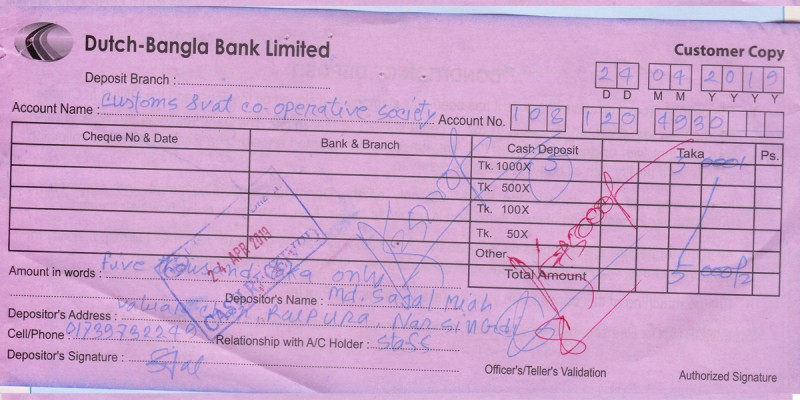 Dutch-Bangla Bank Limited
Customer Copy
Deposit Branch :
24 04 2019
D D M M Y Y Y Y
Account Name : Customs & vat co-operative society
Account No. 108 120 4930
Cheque No & Date Bank & Branch Cash Deposit Taka Ps.
Tk. 1000X 5 5 000/
Tk. 500X
Tk. 100X
Tk. 50X
Other
Total Amount 5 000/
24 APR 2019
Amount in words : five thousand taka only
Depositor's Name : Md. Sagal Miah
Depositor's Address : Raipura, Narsingdi
Cell/Phone : 01739732249 Relationship with A/C Holder : staff
Depositor's Signature :
Officer's/Teller's Validation
Authorized Signature